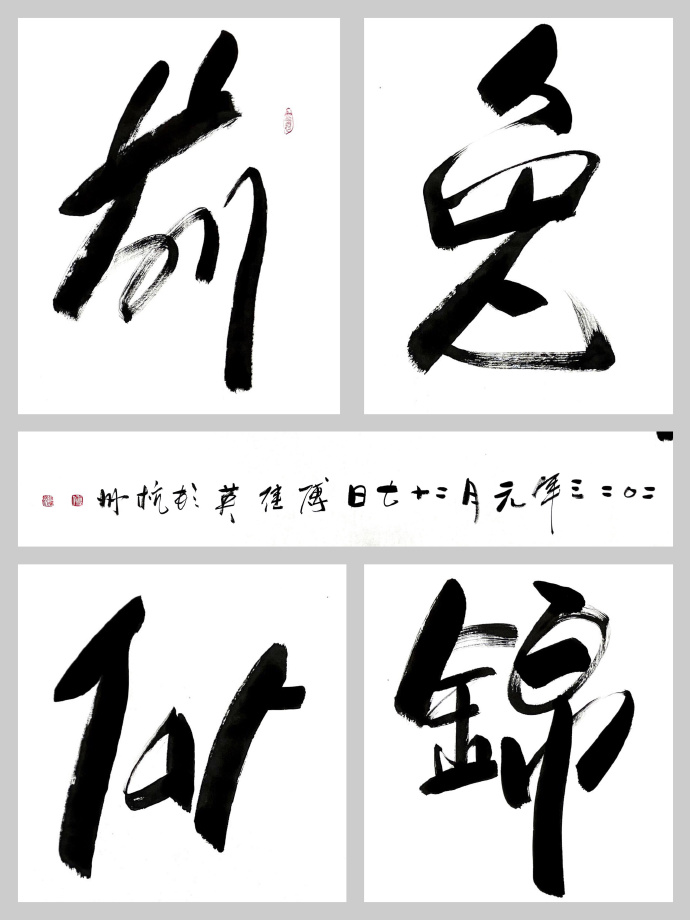 前兔
二〇二三年元月二十七日傅佳英於杭州
似錦